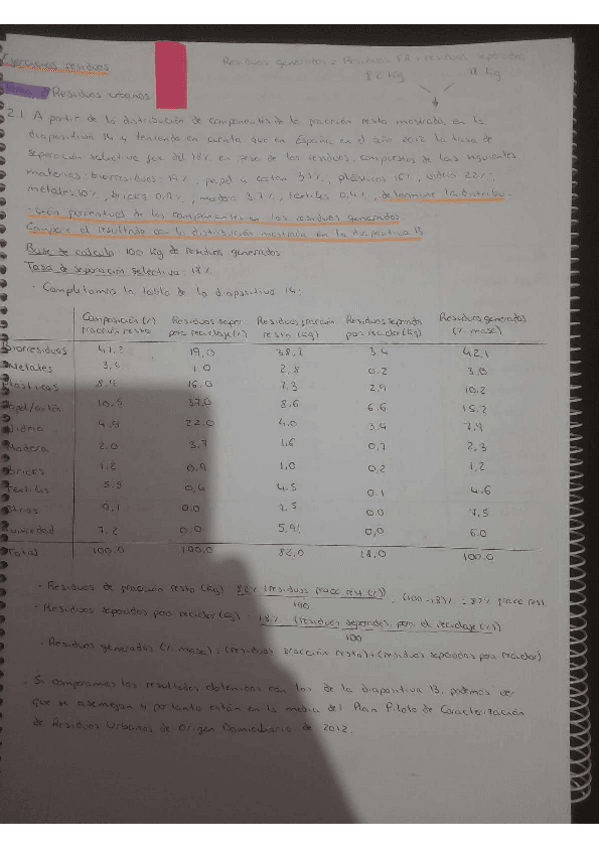 Ejercicios residuos
Residuos generados = Residuos FR + residuos separados
82 kg 18 kg
Residuos urbanos
2.1. A partir de la distribución de componentes de la fracción resto mostrada en la
diapositiva 14 y teniendo en cuenta que en España en el año 2012 la tasa de
separación selectiva fue del 18% en peso de los residuos, compuestos de las siguientes
materias: biorresiduos: 19%, papel y cartón 37%, plásticos 16%, vidrio 22%,
metales 1.0%, bricks 0.9%, madera 3.7%, textiles 0.4%, determine la distribu-
ción porcentual de los componentes en los residuos generados.
Compare el resultado con la distribución mostrada en la diapositiva 13
Base de cálculo: 100 kg de residuos generados
Tasa de separación selectiva: 18%
· Completamos la tabla de la diapositiva 14:
Composición (%) fracción resto Residuos separ. para reciclaje (%) Residuos fracción resto (kg) Residuos separados para reciclar (kg) Residuos generados (% masa)
Biorresiduos 47.2 19,0 38,7 3.4 42,1
Metales 3,4 1.0 2,8 0.2 3,0
Plásticos 8.9 16.0 7,3 2,9 10.2
Papel/cartón 10,5 37,0 8,6 6.6 15.2
Vidrio 4,9 22.0 4.0 3,4 7,9
Madera 2.0 3.7 1,6 0,7 2,3
Bricks 1,2 0,9 1,0 0.2 1,2
Textiles 5.5 0,4 4.5 0.1 4.6
Otros 9,1 0.0 7.5 0.0 7,5
Humedad 7.2 0.0 5,9 0,0 6.0
Total 100.0 100.0 82,0 18.0 100.0
· Residuos de fracción resto (kg) = 82% (residuos fracc rest (%)) / 100
(100 - 18)% = 82% fracc rest
· Residuos separados para reciclar (kg) = 18% (residuos separados para el reciclaje (%)) / 100
· Residuos generados (% masa) = (residuos fracción resto) + (residuos separados para reciclar)
- Si comparamos los resultados obtenidos con los de la diapositiva 13, podemos ver
que se asemejan y por tanto están en la media del Plan Piloto de Caracterización
de Residuos Urbanos de Origen Domiciliario de 2012.